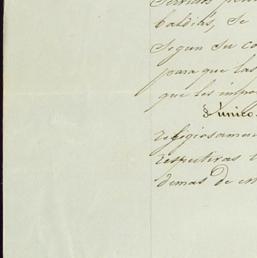 baldias, se
Segun su co
para que las
que les impo
§ unico.
religiosamen
respectivas
demas de